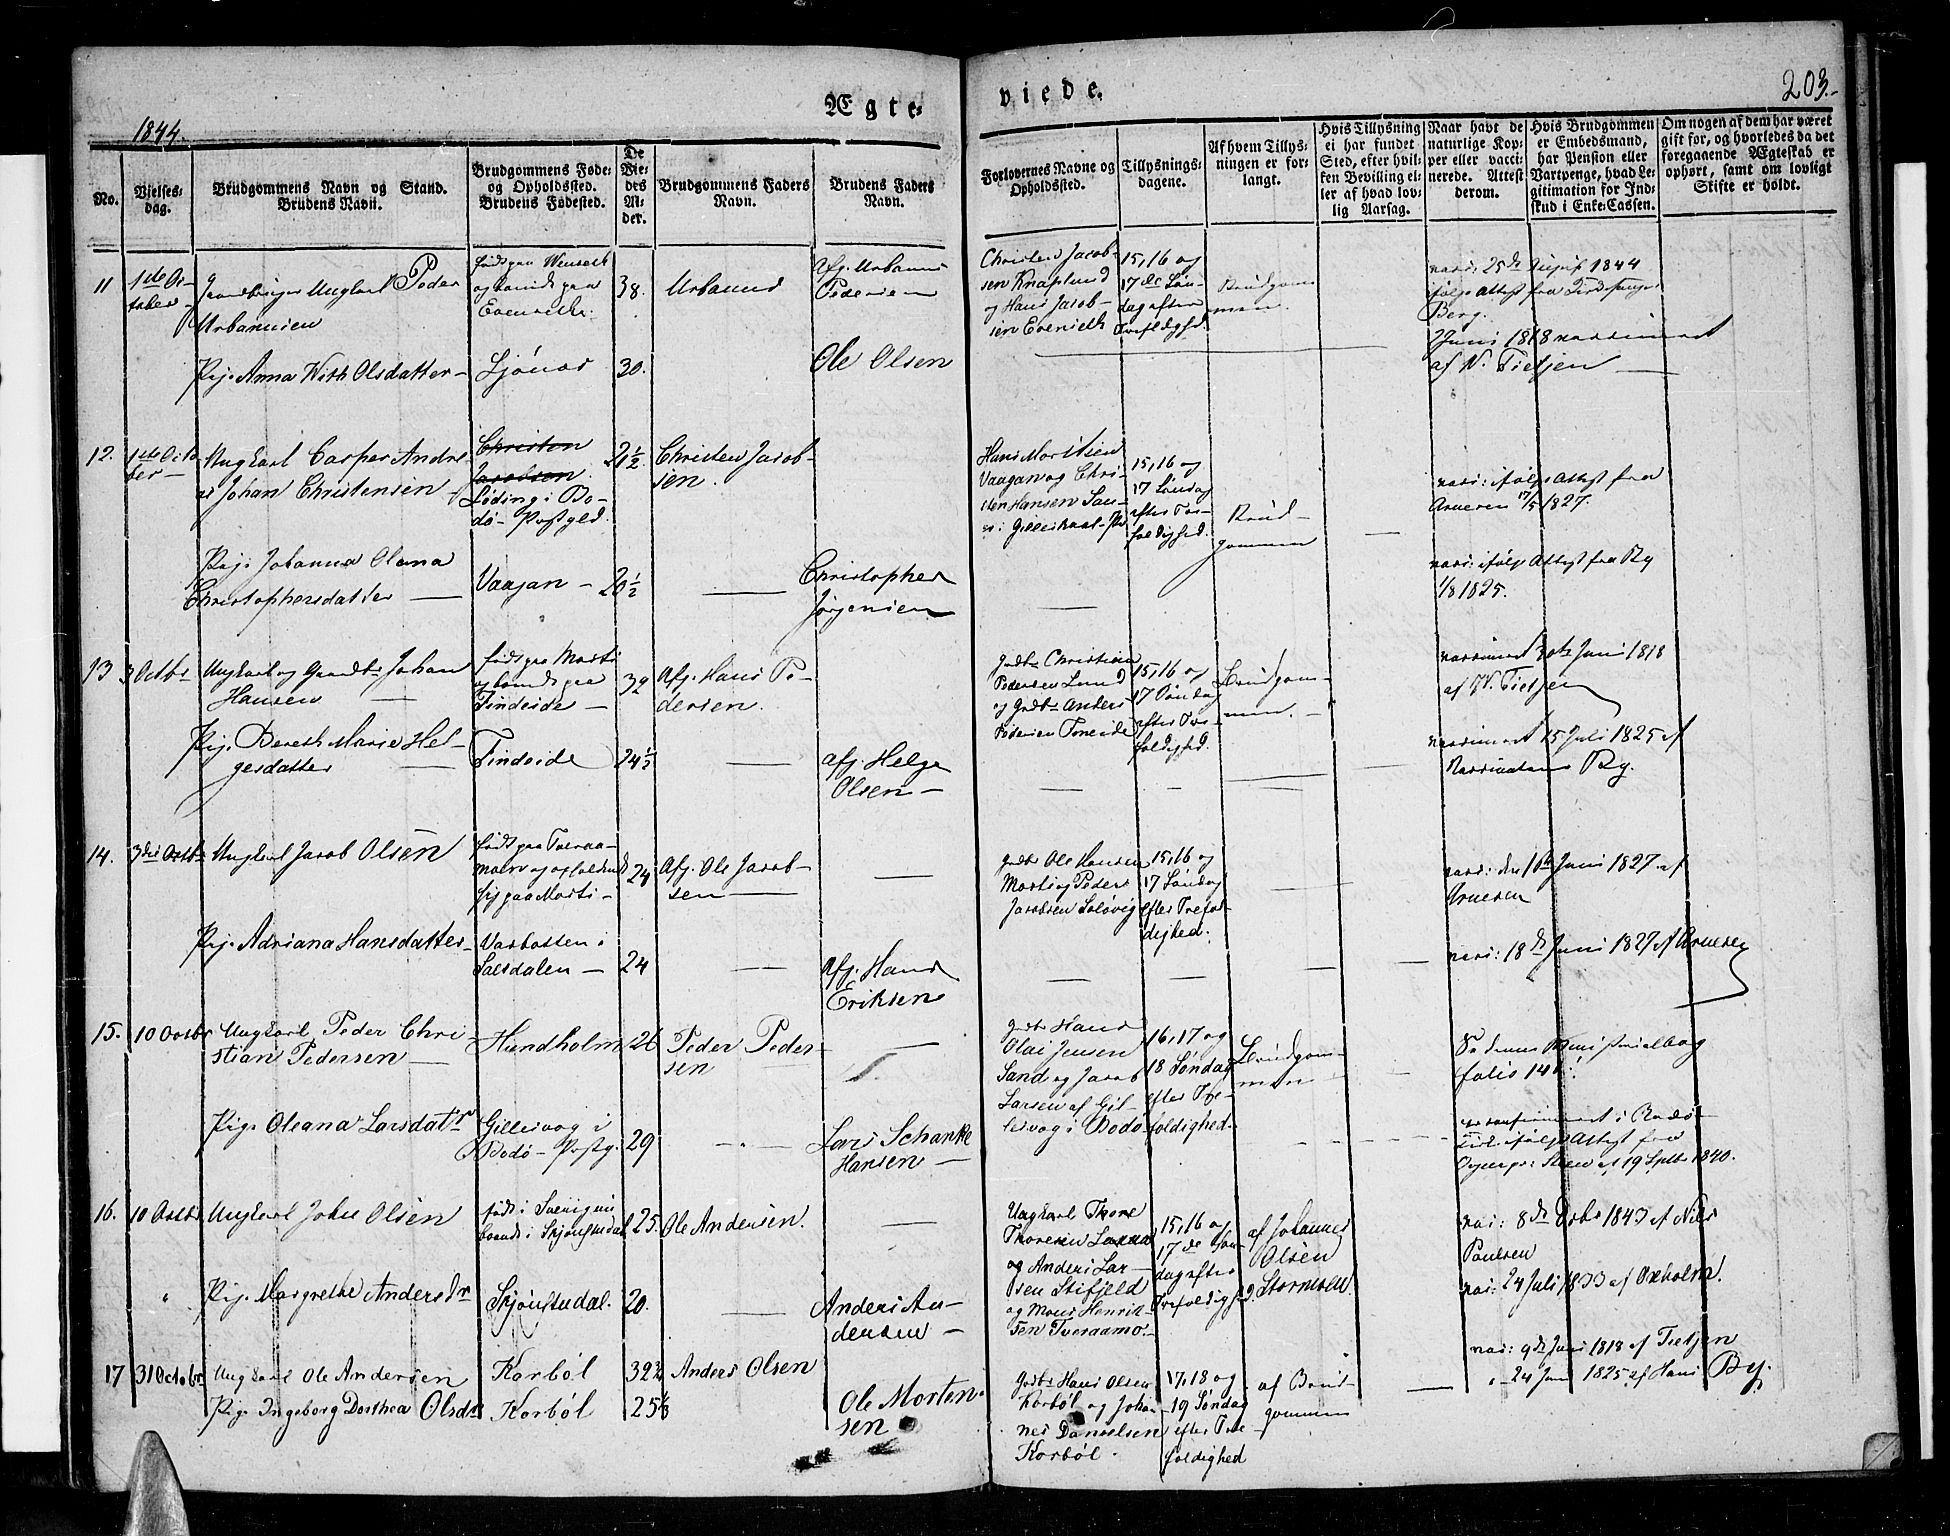 Ægte-
viede.
203.
1844.
No.
Vielses-
dag.
Brudgommens Navn og Stand.
Brudens Navn.
Brudgommens Føde-
og Opholdssted.
Brudens Fødested.
De
Vie-
des
Al-
der.
Brudgommens Faders
Navn.
Brudens Faders
Navn.
Forlovernes Navne og
Opholdssted.
Tillysnings-
dagene.
Af hvem Tillys-
ningen er for-
langt.
Hvis Tillysning
ei har fundet
Sted, efter hvil-
ken Bevilling el-
ler af hvad lov-
lig Aarsag.
Naar havt de
naturlige Kop-
per eller vacci-
nerede. Attest
derom.
Hvis Brudgommen
er Embedsmand,
har Pension eller
Vartpenge, hvad Le-
gitimation for Ind-
skud i Enke-Cassen.
Om nogen af dem har været
gift før, og hvorledes da det
foregaaende Ægteskab er
ophørt, samt om lovligt
Skifte er holdt.
11
1ste Oc-
tober
Ungkarl Peder
Urbanusen
38.
Urbanus
Afg. Urbanus
Pedersen
Christen Jacob-
sen Knaplund
og Hans Jacob-
sen Evenseth
15, 16 og
17de Søn-
dag efter
Trefoldighed.
Brudgom-
men.
vacc: 25de 1844
ifølge Attest fra
Berg.
Pige Anna Olsdatter
30.
Ole Olsen
Juni 1818 vaccineret
af V. Tietjen
12.
1ste Octo-
ber
Ungkarl Casper Andre-
as Johan Christensen
Christen
Jacobsen
Løding i Bo-
dø- Præstgld.
21½
Christen Jacob-
sen.
Vaagan og Chri-
sten Hansen
15, 16 og
17 Søndag
efter Tre-
foldighed.
Brud-
gommen
vacc: ifølge Attest fra
1827.
Pige Johanna Olena
Christophersdatter
Vaagan
20½
Christopher
Jørgensen
vacc: ifølge Attest fra By
1/8 1825.
13
3 Octbr
Ungkarl og Gaardbr Johan
Hansen
født paa Morti
og boende paa
Tindeide
32
Afg. Hans Pe-
dersen.
Gaardbr Christian
Pedersen Lund
og Gaardbr Anders
Pedersen
15, 16 og
17 Søndag
efter Tre-
foldighed.
Brudgom-
men.
vaccineret Juni 1818
af V. Tietjen
Pige Bereth Marie Hel-
gesdatter
Tindeide
24½
afg. Helge
Olsen
vaccineret 15 Juli 1825 af
Vaccinateur By.
14.
3die Octbr
Ungkarl Jacob Olsen
født paa Tveraa-
moen og opholdende
sig paa Morti
24
Afg. Ole Jacob-
sen
Gaardbr Ole Hansen
Morti og Peder
Jacobsen Soløvig
15, 16 og
17 Søndag
efter Trefol-
dighed.
vacc: den Juni 1827 af
Pige Adriana Hansdatter
24
Afg. Hans
Eriksen
vacc: 18de Juni 1827 af
15.
10 Octbr
Ungkarl Peder Chri-
stian Pedersen
Hundholm
26
Peder Peder-
sen
Gaardbr Hans
Olai Jensen
Sand og Jacob
Larsen af Gil-
lesvog i Bodø
16, 17 og
18 Søndag
efter Tre-
foldighed.
Brudgom-
men
Se denne Ministerialbog
folio 141.
Pige Oleana Larsdatr
Gillesvog i
Bodø- Præstg.
29
Lars Schanke
Hansen
er confirmeret i Bodø
Kirke ifølge Attest fra
af 19 Septbr 1840.
16.
10 Octbr
Ungkarl John Olsen
født i Sverig
boende i Skjønstudal
25.
Ole Andersen.
Ungkarl Thore
Thoresen
og Anders Lar-
sen Stifjeld
og Mons Henrik-
sen Tveraamo
15, 16 og
17de Søn-
dag efter
Trefoldighd.
af Johannes
Olsen
Stormoen
vac: 8de Octbr 1843 af Nils
Paulsen
Pige Margrethe Andersdr
Skjønstudal.
20.
Anders An-
dersen
vac: 24 Juli 1833 af Oxholm.
17
31 October
Ungkarl Ole Andersen
Korbøl
32¾
Anders Olsen
Gaardbr Hans Olsen
Korbøl og Johan-
nes Danielsen
Korbøl.
17, 18 og
19 Søndag
efter Tre-
foldighed
af Brud-
gommen
vac: 9de Juni 1818 af Tietjen
Pige Ingeborg Dorthea Olsdr
Korbøl
25
Ole Morten-
sen
24 Juni 1825 af Hans By.